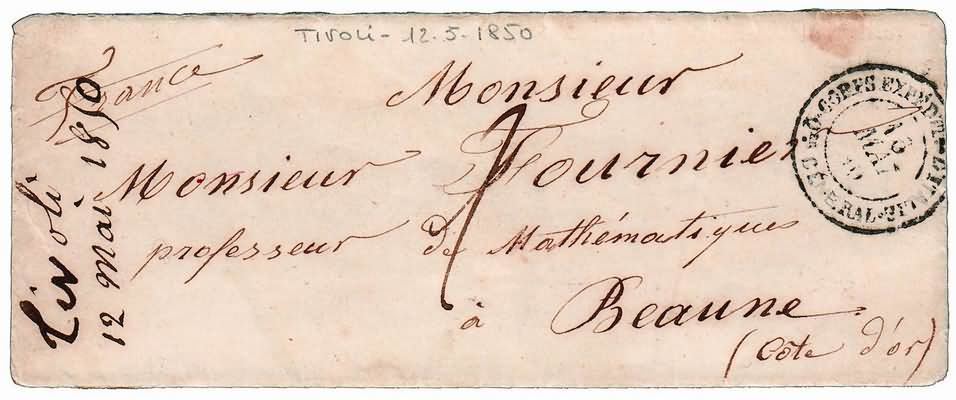 TIVOLI - 12.5.1850
France
Monsieur
Monsieur Fournier
professeur de Mathématiques
à Beaune
(Côte d'or)
Tivoli
12 Mai 1850
CORPS EXPEDRE D'ITALIE
13
MAI
GÉNÉRAL